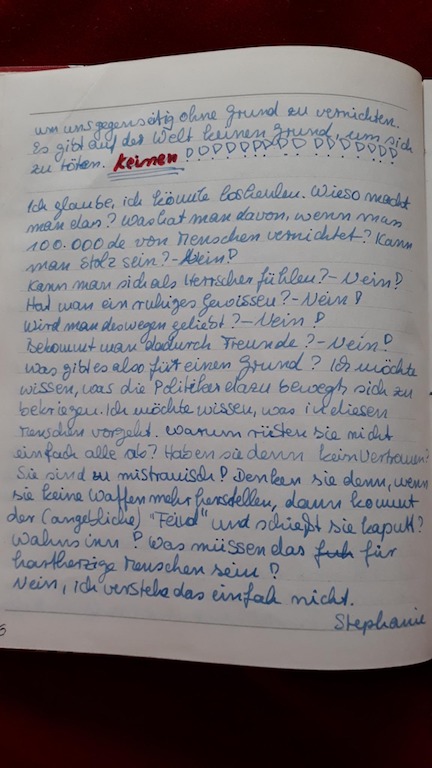 um uns gegenseitig ohne Grund zu vernichten.
Es gibt auf der Welt keinen Grund, um sich
zu töten. Keinen !!!!!!!!!!!!!!!!!
Ich glaube, ich könnte losheulen. Wieso macht
man das? Was hat man davon, wenn man
100.000de von Menschen vernichtet? Kann
man stolz sein? - Nein!
Kann man sich als Herrscher fühlen? - Nein!
Hat man ein ruhiges Gewissen? - Nein!
Wird man deswegen geliebt? - Nein!
Bekommt man dadurch Freunde? - Nein!
Was gibt es also für einen Grund? Ich möchte
wissen, was die Politiker dazu bewegt sich zu
bekriegen. Ich möchte wissen, was in diesen
Menschen vorgeht. Warum rüsten sie nicht
einfach alle ab? Haben sie denn kein Vertrauen?
Sie sind zu mistrauisch! Denken sie denn, wenn
sie keine Waffen mehr herstellen, dann kommt
der (angebliche) "Feind" und schießt sie kaputt?
Wahnsinn! Was müssen das für
hartherzige Menschen sein!
Nein, ich verstehe das einfach nicht.
Stephanie